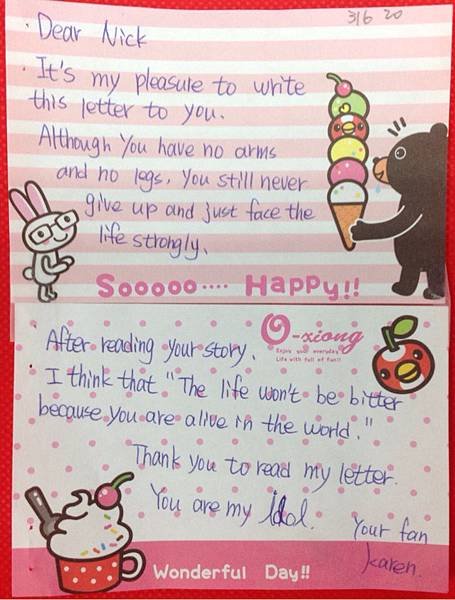 316 20
Dear Nick
It's my pleasure to write
this letter to you.
Although you have no arms
and no legs, you still never
give up and just face the
life strongly.
Sooooo···· Happy!!
O-xiong
Enjoy your everyday
Life with full of fun!!
After reading your story.
I think that "The life won't be bitter
because you are alive in the world."
Thank you to read my letter.
You are my idol.
Your fan
karen.
Wonderful Day!!